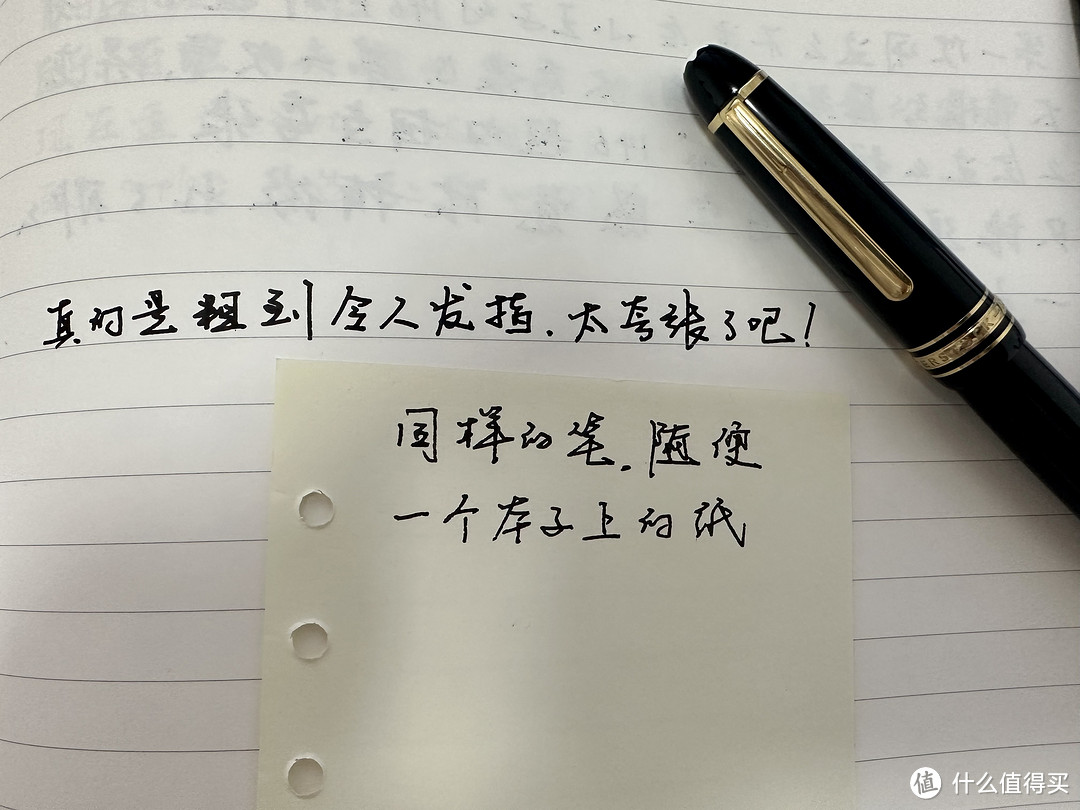 真的是粗到令人发指.太夸张了吧!
同样的笔.随便
一个本子上的纸
值 什么值得买